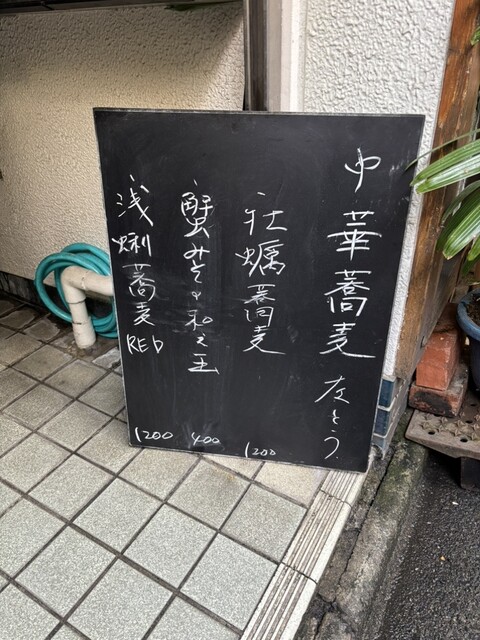 中華蕎麦 左とう
牡蠣蕎麦 1200
蟹みその和え玉 400
浅蜊蕎麦 RED 1200